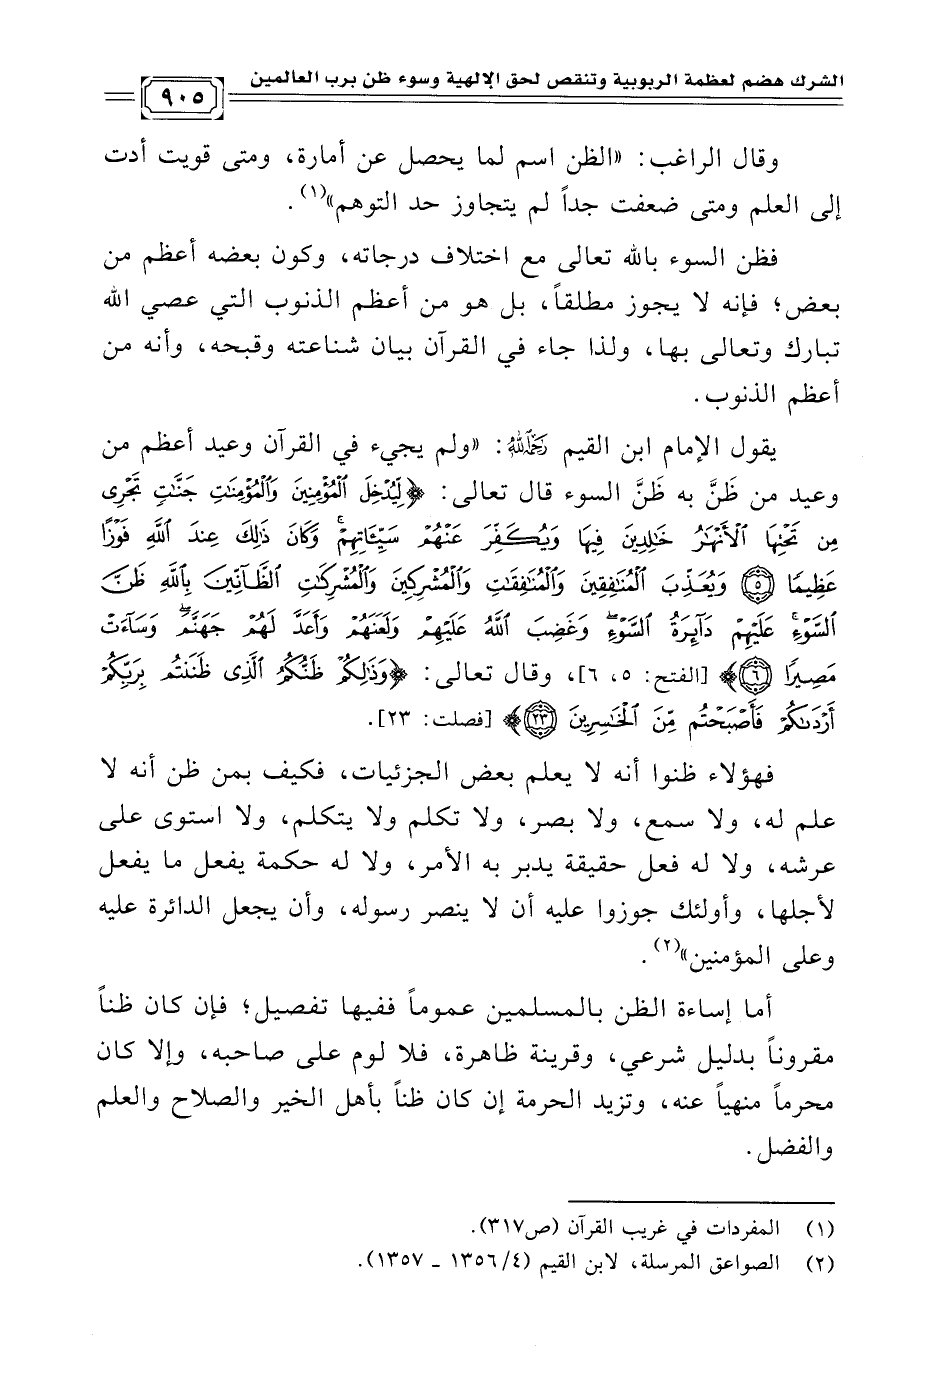 الشرك هضم لعظمة الربوبية وتنقص لحق الإلهية وسوء ظن برب العالمين
٩٠٥
وقال الراغب: «الظن اسم لما يحصل عن أمارة، ومتى قويت أدت
إلى العلم ومتى ضعفت جداً لم يتجاوز حد التوهم»(١).
فظن السوء بالله تعالى مع اختلاف درجاته، وكون بعضه أعظم من
بعض؛ فإنه لا يجوز مطلقاً، بل هو من أعظم الذنوب التي عصي الله
تبارك وتعالى بها، ولذا جاء في القرآن بيان شناعته وقبحه، وأنه من
أعظم الذنوب.
يقول الإمام ابن القيم رَحِمَهُ اللَّهُ: «ولم يجيء في القرآن وعيد أعظم من
وعيد من ظَنَّ به ظَنَّ السوء قال تعالى: ﴿لِّيُدْخِلَ ٱلْمُؤْمِنِينَ وَٱلْمُؤْمِنَٰتِ جَنَّٰتٍ تَجْرِى
مِن تَحْتِهَا ٱلْأَنْهَٰرُ خَٰلِدِينَ فِيهَا وَيُكَفِّرَ عَنْهُمْ سَيِّـَٔاتِهِمْ ۚ وَكَانَ ذَٰلِكَ عِندَ ٱللَّهِ فَوْزًا
عَظِيمًا ٥ وَيُعَذِّبَ ٱلْمُنَٰفِقِينَ وَٱلْمُنَٰفِقَٰتِ وَٱلْمُشْرِكِينَ وَٱلْمُشْرِكَٰتِ ٱلظَّآنِّينَ بِٱللَّهِ ظَنَّ
ٱلسَّوْءِ ۚ عَلَيْهِمْ دَآئِرَةُ ٱلسَّوْءِ ۖ وَغَضِبَ ٱللَّهُ عَلَيْهِمْ وَلَعَنَهُمْ وَأَعَدَّ لَهُمْ جَهَنَّمَ ۖ وَسَآءَتْ
مَصِيرًا ٦﴾ [الفتح: ٥، ٦]، وقال تعالى: ﴿وَذَٰلِكُمْ ظَنُّكُمُ ٱلَّذِى ظَنَنتُم بِرَبِّكُمْ
أَرْدَىٰكُمْ فَأَصْبَحْتُم مِّنَ ٱلْخَٰسِرِينَ ٢٣﴾ [فصلت: ٢٣].
فهؤلاء ظنوا أنه لا يعلم بعض الجزئيات، فكيف بمن ظن أنه لا
علم له، ولا سمع، ولا بصر، ولا تكلم ولا يتكلم، ولا استوى على
عرشه، ولا له فعل حقيقة يدبر به الأمر، ولا له حكمة يفعل ما يفعل
لأجلها، وأولئك جوزوا عليه أن لا ينصر رسوله، وأن يجعل الدائرة عليه
وعلى المؤمنين»(٢).
أما إساءة الظن بالمسلمين عموماً ففيها تفصيل؛ فإن كان ظناً
مقروناً بدليل شرعي، وقرينة ظاهرة، فلا لوم على صاحبه، وإلا كان
محرماً منهياً عنه، وتزيد الحرمة إن كان ظناً بأهل الخير والصلاح والعلم
والفضل.
(١) المفردات في غريب القرآن (ص٣١٧).
(٢) الصواعق المرسلة، لابن القيم (٤/ ١٣٥٦ ـ ١٣٥٧).